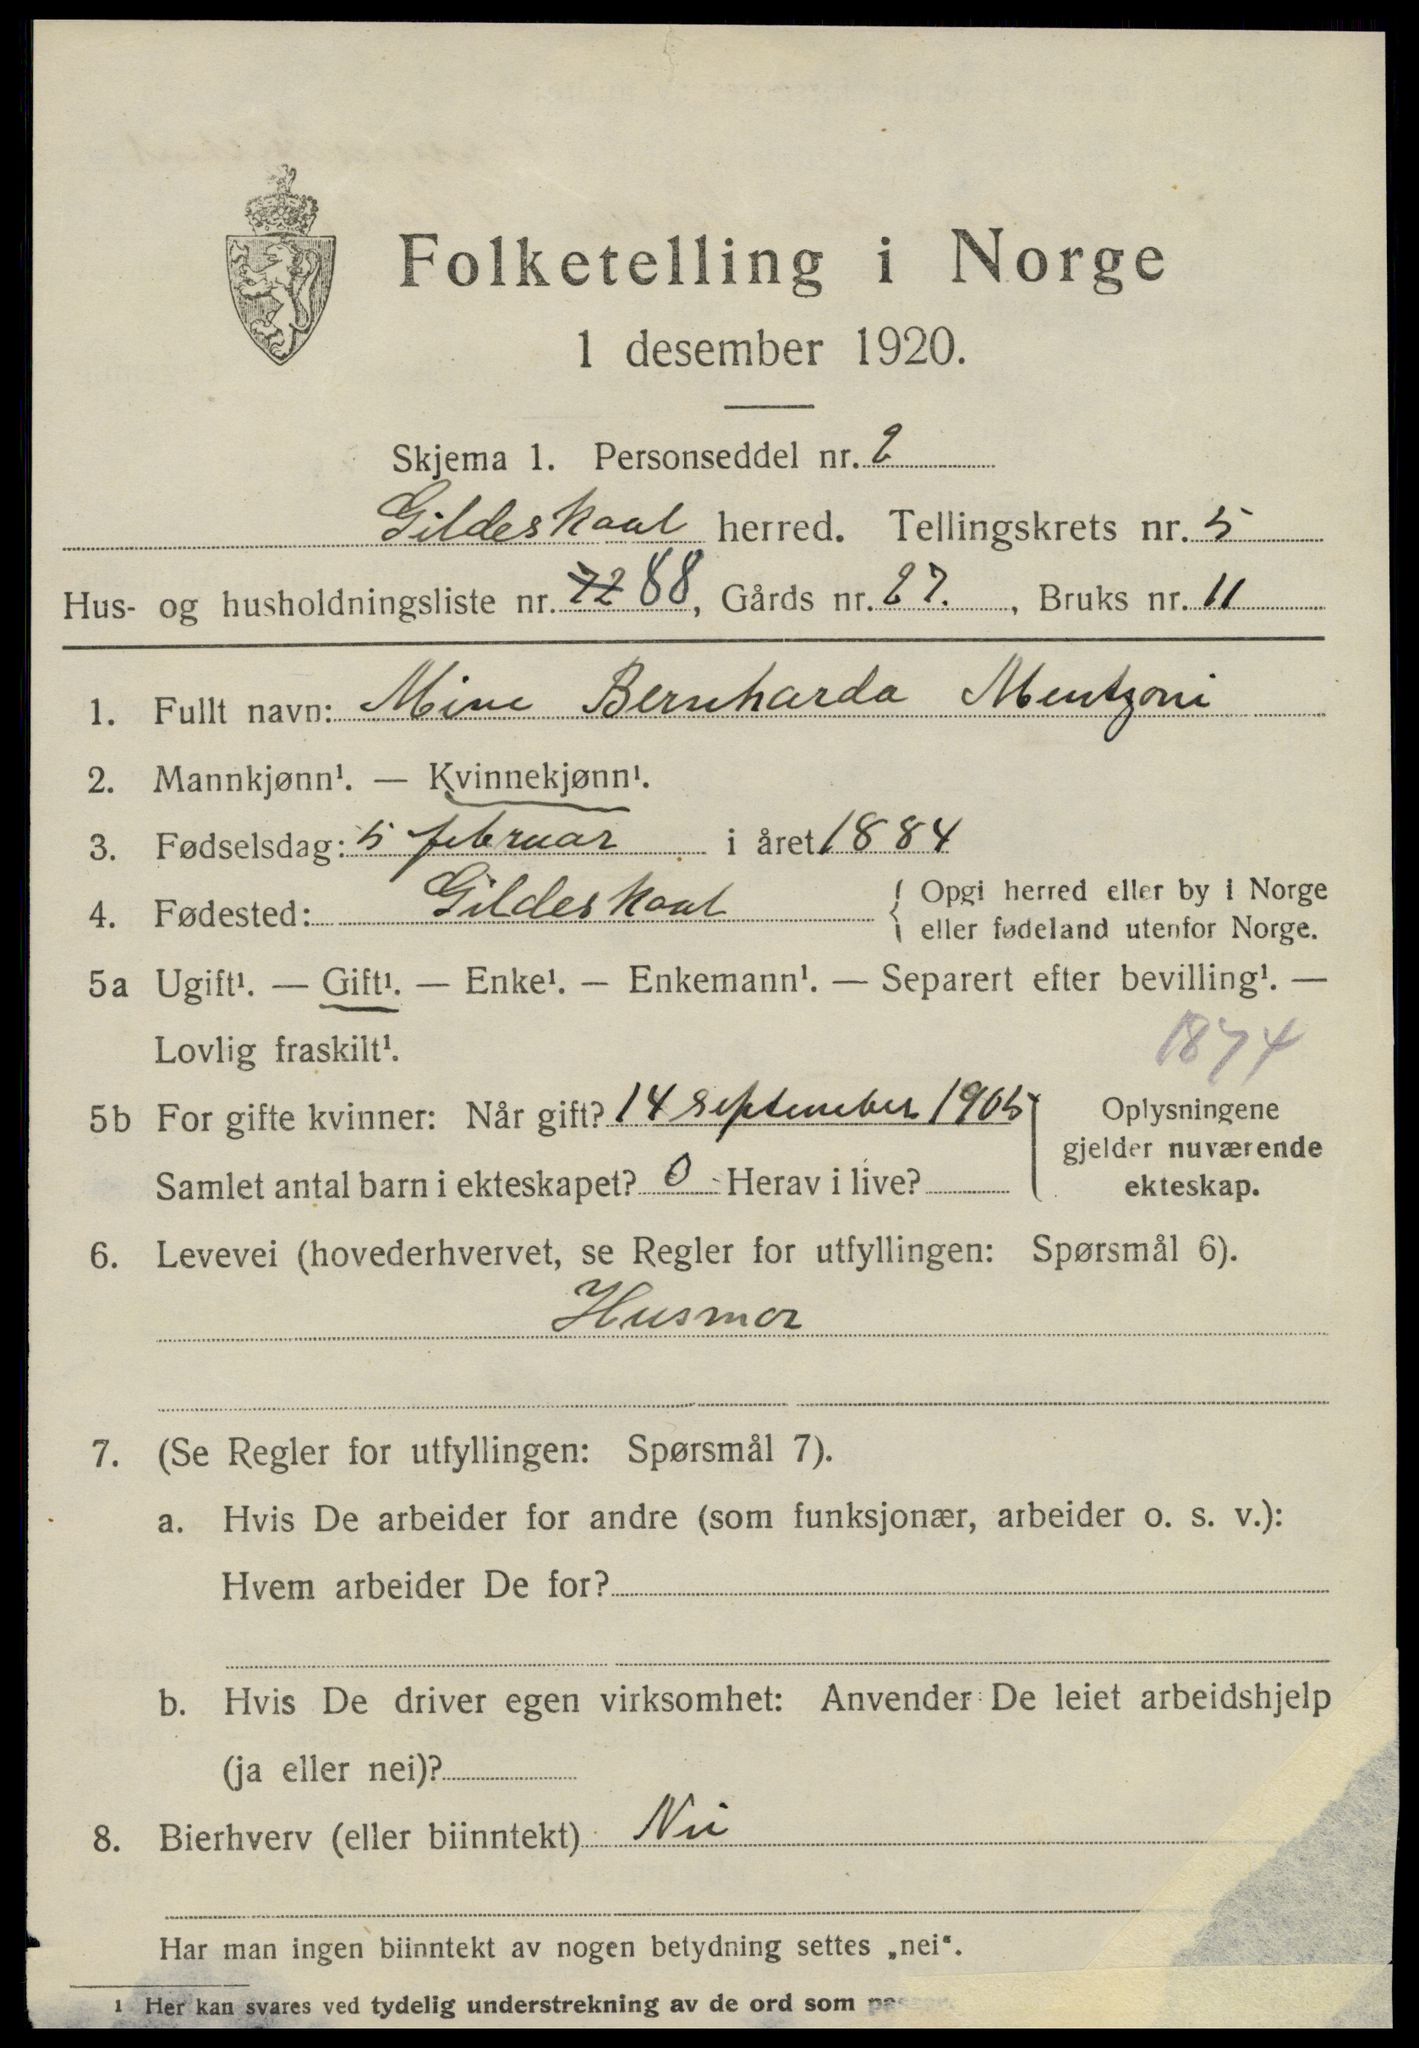 Folketelling i Norge
1 desember 1920.
Skjema 1. Personseddel nr. 2
Gildeskaal herred. Tellingskrets nr. 5
Hus- og husholdningsliste nr. 72 88, Gårds nr. 27. , Bruks nr. 11
1. Fullt navn: Mine Bernharda Mentzoni
2. Mannkjønn¹. — Kvinnekjønn¹.
3. Fødselsdag: 5 februar i året 1884
4. Fødested: Gildeskaal { Opgi herred eller by i Norge
eller fødeland utenfor Norge.
5a Ugift¹. — Gift¹. — Enke¹. — Enkemann¹. — Separert efter bevilling¹. —
Lovlig fraskilt¹.
1874
5b For gifte kvinner: Når gift? 14 september 1905
Samlet antal barn i ekteskapet? 0 Herav i live?
Oplysningene
gjelder nuværende
ekteskap.
6. Levevei (hovederhvervet, se Regler for utfyllingen: Spørsmål 6).
Husmor
7. (Se Regler for utfyllingen: Spørsmål 7).
a. Hvis De arbeider for andre (som funksjonær, arbeider o. s. v.):
Hvem arbeider De for?
b. Hvis De driver egen virksomhet: Anvender De leiet arbeidshjelp
(ja eller nei)?
8. Bierhverv (eller biinntekt) Nei
Har man ingen biinntekt av nogen betydning settes „nei“.
¹ Her kan svares ved tydelig understrekning av de ord som